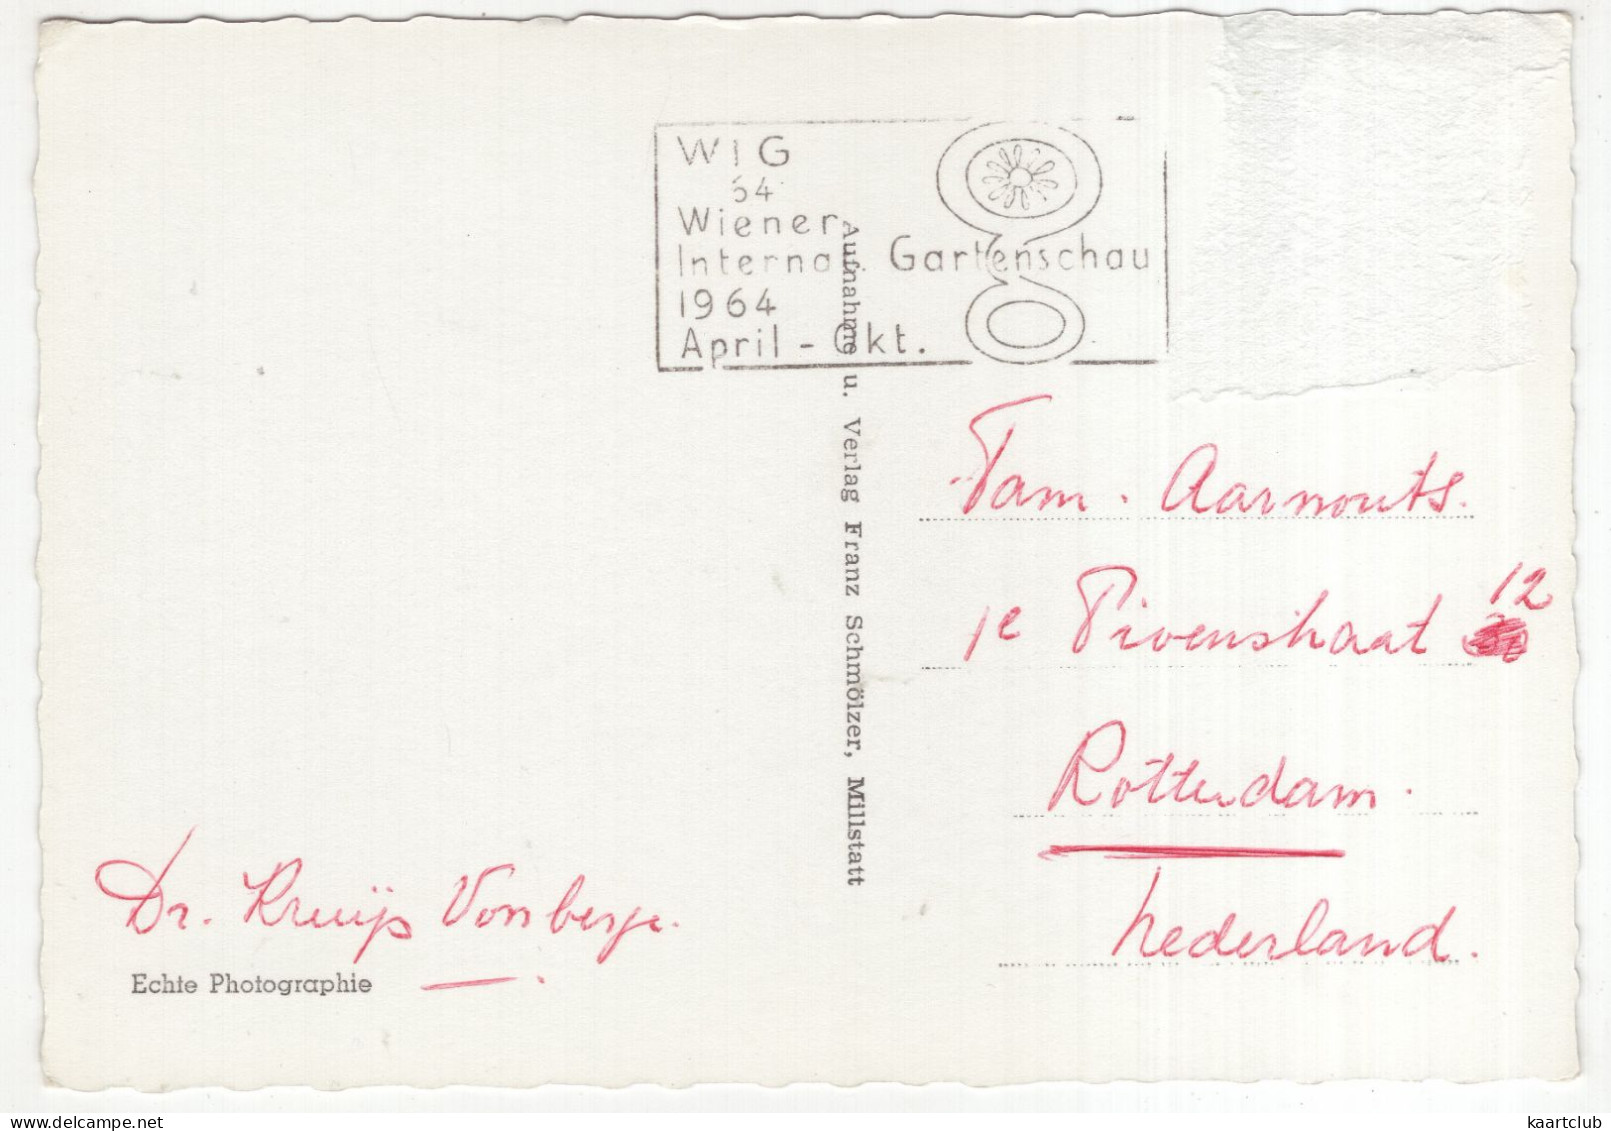 WIG
64
Wiener
Internat. Gartenschau
1964
April - Okt.
Aufnahme u. Verlag Franz Schmölzer, Millstatt
Fam. Aarnouts.
1e Pivenstraat 12
Rotterdam.
Nederland.
Dr. Kruijs Vonberge.
Echte Photographie
kaartclub